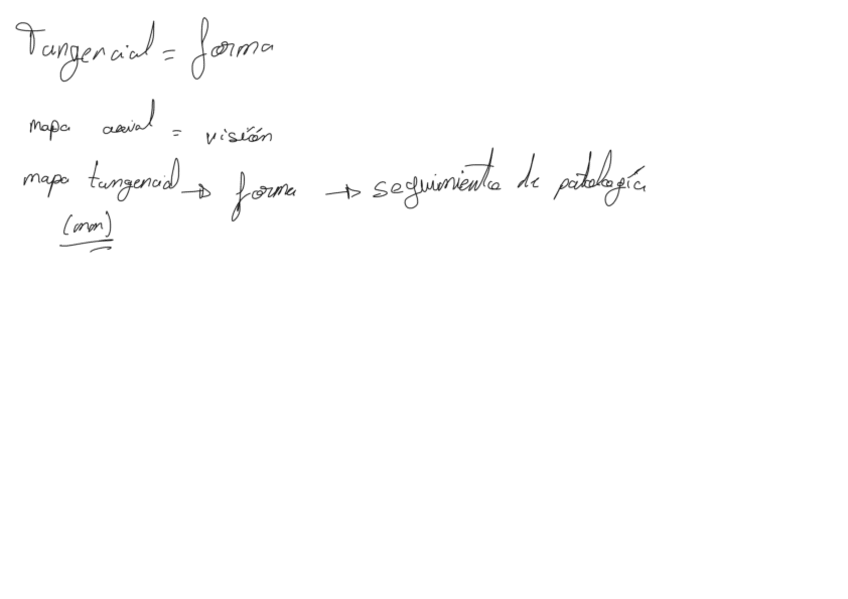 Tangencial = forma
mapa axial = visión
mapa tangencial → forma → seguimiento de patología
(mm)